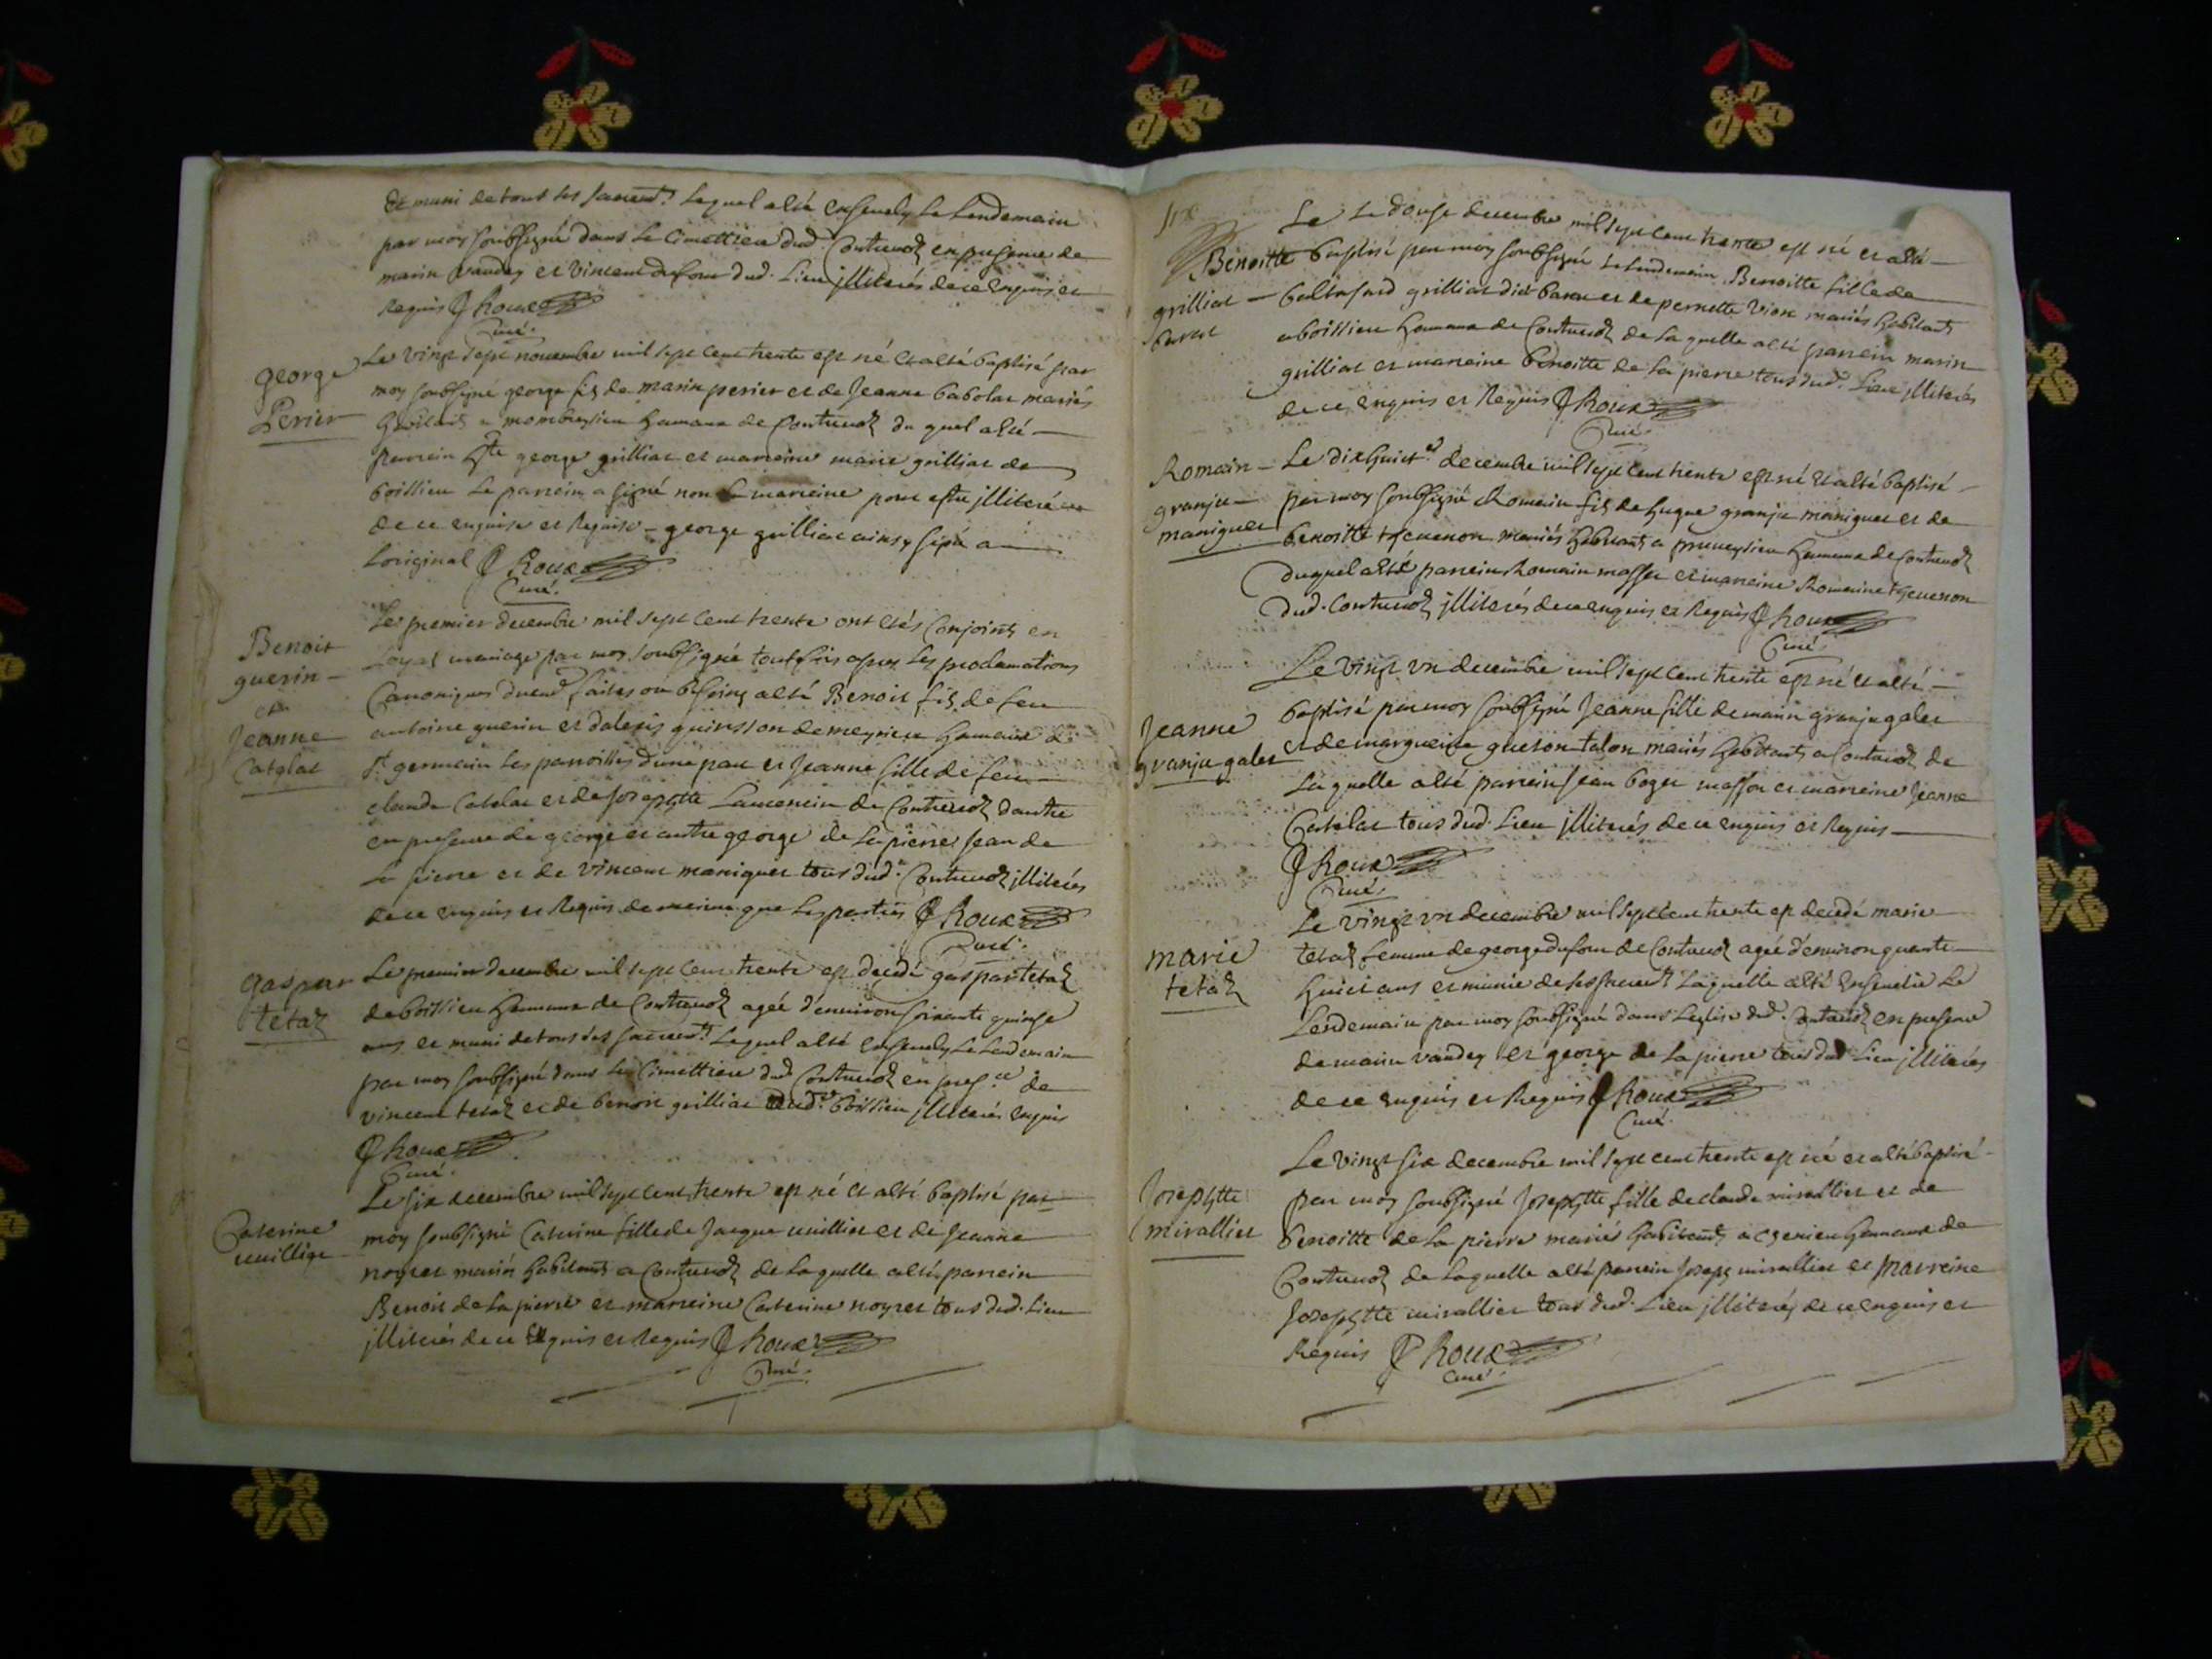 et muni de tout ses sacremts. Lequel a lté ensevely le lendemain
par moy soubsigné dans le cimettiere dud. Contrevoz en presence de
marin vandey et vincent dufour dud. Lieu jlliterés de ce enquis et
Requis P Roux
Curé.
george
Perier
Le vingt sept novembre mil sept cent trente est né et a lté baptisé par
moy soubsigné george fils de marin perier et de Jeanne babolat mariés
habitants a mombreysieu hameau de Contrevoz du quel a lté
parrein george grilliat et marreine marie grilliat de
boissieu Le parrein a signé non la marreine pour estre jlliteré
de ce enquise et Requise - george grilliat ainsy signé a
Loriginal P Roux
Curé.
Benoit
guerin
et
Jeanne
Catelat
Le premier decembre mil sept cent trente ont etés Conjoints en
Loyal mariage par moy soubsigné toutfois apres les proclamations
Canoniques faites ou besoing a lté Benoit fils de feu
antoine guerin et dalexis quinsson de meyrieu hameau de
St. germain les paroisses d'une part et Jeanne fille de feu
claude Catelat et de Josephte Laurencin de Contrevoz dautre
en presence de george et autre george de la pierre Jean de
La pierre et de vincent maniguet tous dud. Contrevoz jlliterés
de ce enquis et Requis de meime que les parties P Roux
Curé.
gaspar
tetaz
Le premier decembre mil sept cent trente est decedé gaspar tetaz
de boissieu hameau de Contrevoz agée d'environ soixante quinse
ans et muni de tous ses sacremts. Lequel a lté ensevely Le Lendemain
par moy soubsigné dans le Cimettiere dud Contrevoz en presce de
vincent tetaz et de benoit grilliat dud. boissieu jlliterés enquis
P Roux
Curé.
Caterine
vuillige
Le six decembre mil sept cent trente est né et a lté baptisé par
moy soubsigné Caterine fille de Jaque vuillier et de Jeanne
noyret mariés habitants a Contrevoz de la quelle a lté parrein
Benoit de la pierre et marreine Caterine noyret tous dud. Lieu
jlliterés de ce Enquis et Requis P Roux
Curé.
Benoitte
grilliat
barat
Le douse decembre mil sept cent trente est né et a lté
baptisé par moy soubsigné le lendemain Benoitte fille de
baltasard grilliat dict barat et de pernette vion mariés habitants
a boissieu hameau de Contrevoz de la quelle a lté parrein marin
grilliat et marreine benoitte de la pierre tous dud. Lieu jlliterés
de ce enquis et Requis P Roux
Curé.
Romain
granju
maniguet
Le dix huict decembre mil sept cent trente est né et a lté baptisé
par moy soubsigné Romain fils de hugue granju maniguet et de
benoitte thevenon mariés habitants a preveysieu hameau de Contrevoz
duquel a lté parrein Romain masson et marreine Romaine thevenon
dud. Contrevoz jlliterés de ce enquis et Requis P Roux
Curé.
Jeanne
granju galet
Le vingt vn decembre mil sept cent trente est né et a lté
baptisé par moy soubsigné Jeanne fille de marin granju galet
et de margueite talon mariés habitants a Contrevoz de
La quelle a lté parrein Jean boget masson et marreine Jeanne
Catelat tous dud. Lieu jlliterés de ce enquis et Requis
P Roux
Curé.
marie
tetaz
Le vingt vn decembre mil sept cent trente est decedé marie
tetaz femme de george dufour de Contrevoz agée d'environ quarante
huict ans et munie de ses sacremts. Laquelle a lté Ensevelie Le
Lendemain par moy soubsigné dans Leglise dud. Contrevoz en presence
de marin vandey et george de la pierre tous dud Lieu jlliterés
de ce enquis et Requis P Roux
Curé.
Josephte
mirallier
Le vingt six decembre mil sept cent trente est né et a lté baptisé
par moy soubsigné Josephte fille de claude mirallier et de
benoitte de la pierre mariés habitants a cherieu hameau de
Contrevoz de laquelle a lté parrein Joseph mirallier et Marreine
Josephte mirallier tous dud. Lieu jlliterés de ce enquis et
Requis P Roux
Curé.